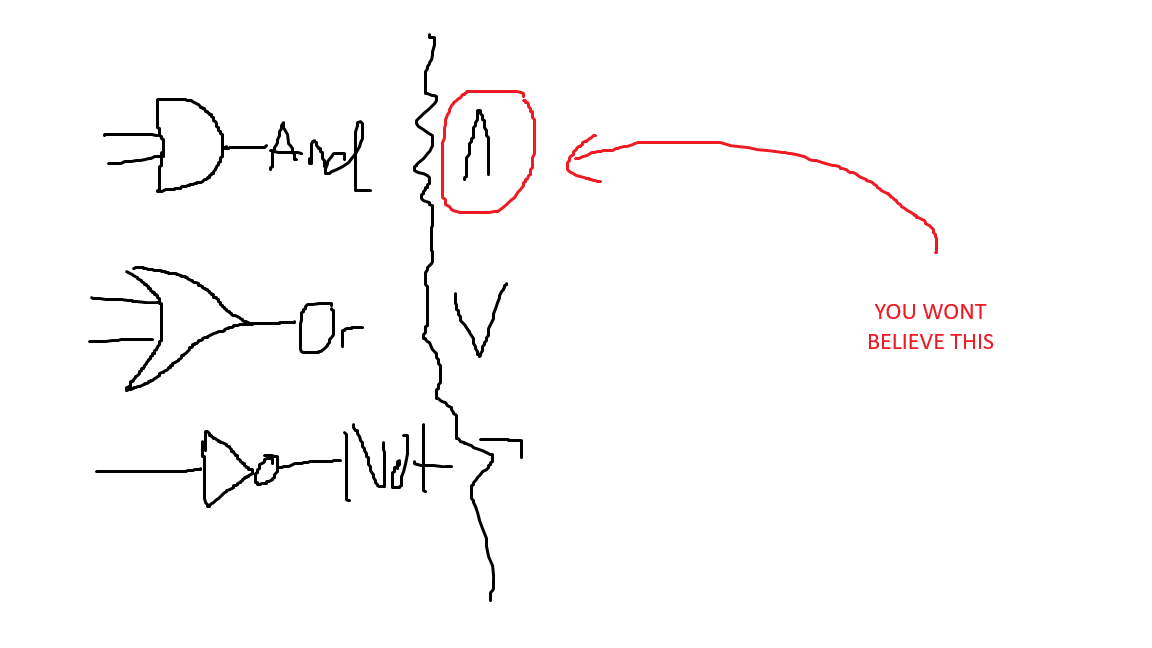 And ∧
Or ∨
Not ¬
YOU WONT
BELIEVE THIS